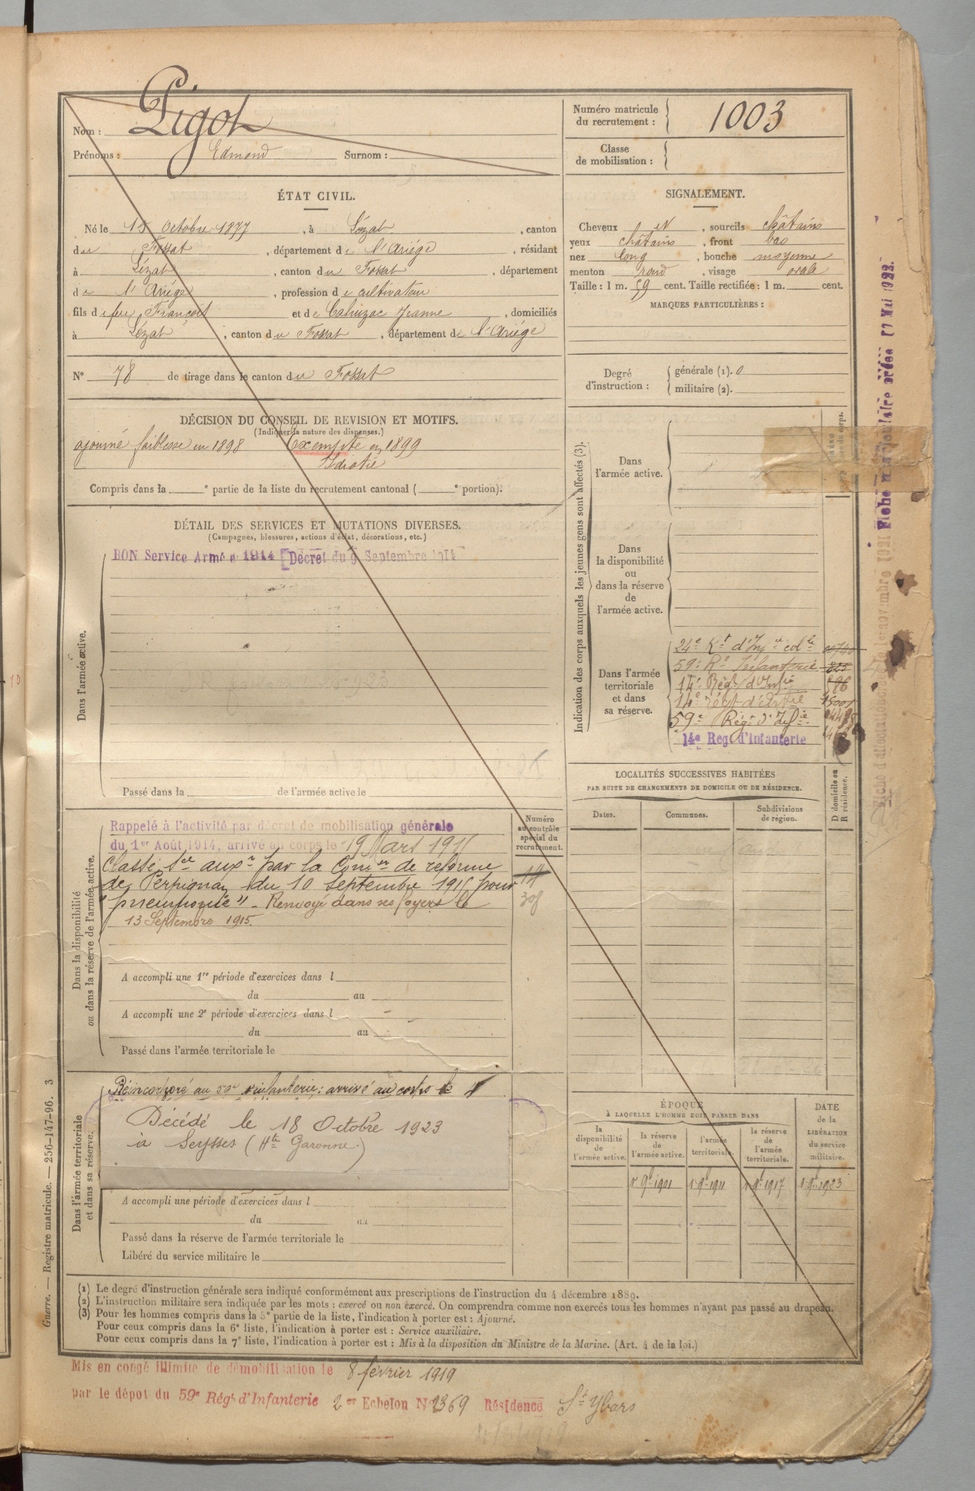 Nom : Pigot
Prénoms : Edmond Surnom :
Numéro matricule du recrutement : 1003
Classe de mobilisation :
ÉTAT CIVIL.
Né le 15 octobre 1877, à Lézat, canton
du Fossat, département de l'Ariège, résidant
à Lézat, canton du Fossat, département
de l'Ariège, profession de cultivateur
fils de feu François et de Jeanne, domiciliés
à Lézat, canton du Fossat, département de l'Ariège
N° 78 de tirage dans le canton du Fossat
SIGNALEMENT.
Cheveux et, sourcils châtains
yeux châtains, front bas
nez long, bouche moyenne
menton rond, visage ovale
Taille : 1 m. 59 cent. Taille rectifiée : 1 m. cent.
MARQUES PARTICULIÈRES :
Degré d'instruction : générale (1). 0
militaire (2).
DÉCISION DU CONSEIL DE REVISION ET MOTIFS.
(Indiquer la nature des dispenses.)
ajourné faiblesse en 1898 exempté en 1899
Compris dans la e partie de la liste du recrutement cantonal ( e portion).
DÉTAIL DES SERVICES ET MUTATIONS DIVERSES.
(Campagnes, blessures, actions d'éclat, décorations, etc.)
BON Service Armé 1914 [Décret du 9 Septembre 1914
Dans l'armée active.
Passé dans la de l'armée active le
Indication des corps auxquels les jeunes gens sont affectés (3).
Dans l'armée active.
Dans la disponibilité ou dans la réserve de l'armée active.
Dans l'armée territoriale et dans sa réserve.
24e Rt d'Inf ie col le
59e Rt
14e Régt d'Infie
14e
59e Régt d'Infie
14e Reg. d'Infanterie
LOCALITÉS SUCCESSIVES HABITÉES
PAR SUITE DE CHANGEMENTS DE DOMICILE OU DE RÉSIDENCE.
Dates. Communes. Subdivisions de région. D domicile ou R résidence.
Numéro au contrôle spécial du recrutement.
Dans la disponibilité ou dans la réserve de l'armée active.
Rappelé à l'activité par décret de mobilisation générale
du 1er Août 1914, arrivé au corps le 19 Mars 1915
Classé sce auxre par la Comon de reforme
de Perpignan du 10 septembre 1915 pour
"pneumonie" - Renvoyé dans ses foyers le
13 Septembre 1915.
A accompli une 1re période d'exercices dans l
du au
A accompli une 2e période d'exercices dans l
du au
Passé dans l'armée territoriale le
Dans l'armée territoriale et dans sa réserve.
Réincorporé au 59e d'infanterie : arrivé au corps le
Décédé le 18 Octobre 1923
à Seysses (Hte Garonne.)
A accompli une période d'exercices dans l
du au
Passé dans la réserve de l'armée territoriale le
Libéré du service militaire le
ÉPOQUE
À LAQUELLE L'HOMME DOIT PASSER DANS
la disponibilité de l'armée active. la réserve de l'armée active. l'armée territoriale. la réserve de l'armée territoriale. DATE de la LIBÉRATION du service militaire.
1 9bre 1901 1 9bre 1911 1 9bre 1917 1 9bre 1923
(1) Le degré d'instruction générale sera indiqué conformément aux prescriptions de l'instruction du 4 décembre 1889.
(2) L'instruction militaire sera indiquée par les mots : exercé ou non exercé. On comprendra comme non exercés tous les hommes n'ayant pas passé au drapeau.
(3) Pour les hommes compris dans la 5e partie de la liste, l'indication à porter est : Ajourné.
Pour ceux compris dans la 6e liste, l'indication à porter est : Service auxiliaire.
Pour ceux compris dans la 7e liste, l'indication à porter est : Mis à la disposition du Ministre de la Marine. (Art. 4 de la loi.)
Guerre. — Registre matricule. — 256-147-96. 3
Mis en congé illimité de démobilisation le 8 février 1919
par le dépot du 59e Régt d'Infanterie 2e Echelon N° 2369 Résidence St Ybars